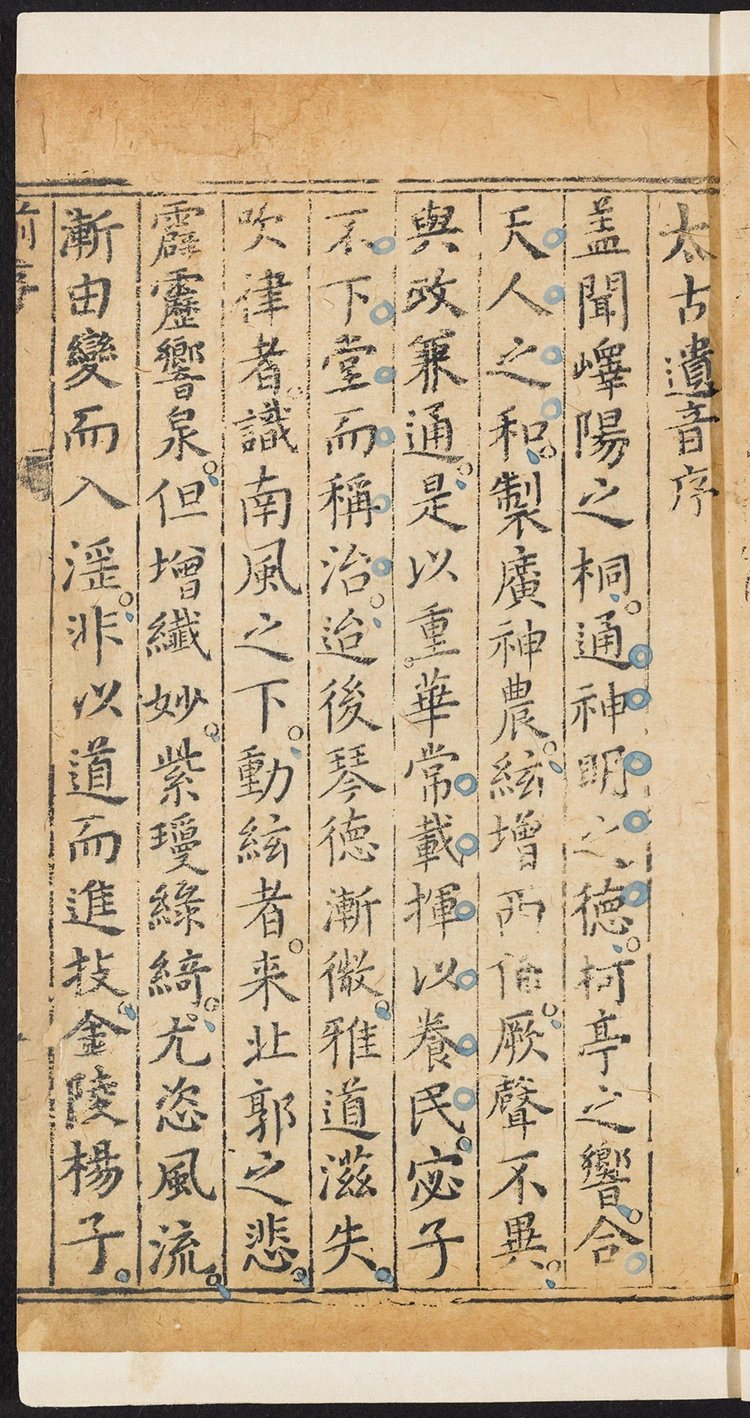 太古遺音序
盖聞嶧陽之桐通神明之德柯亭之響合
天人之和製廣神農絃增西伯厥聲不異
與政兼通是以重華常載揮以養民宓子
不下堂而稱治迨後琴德漸微雅道滋失
吹律者識南風之下動絃者来北郭之悲
霹靂響泉但增纖妙紫瓊綠綺尤恣風流
漸由變而入滛非以道而進技金陵楊子
前序